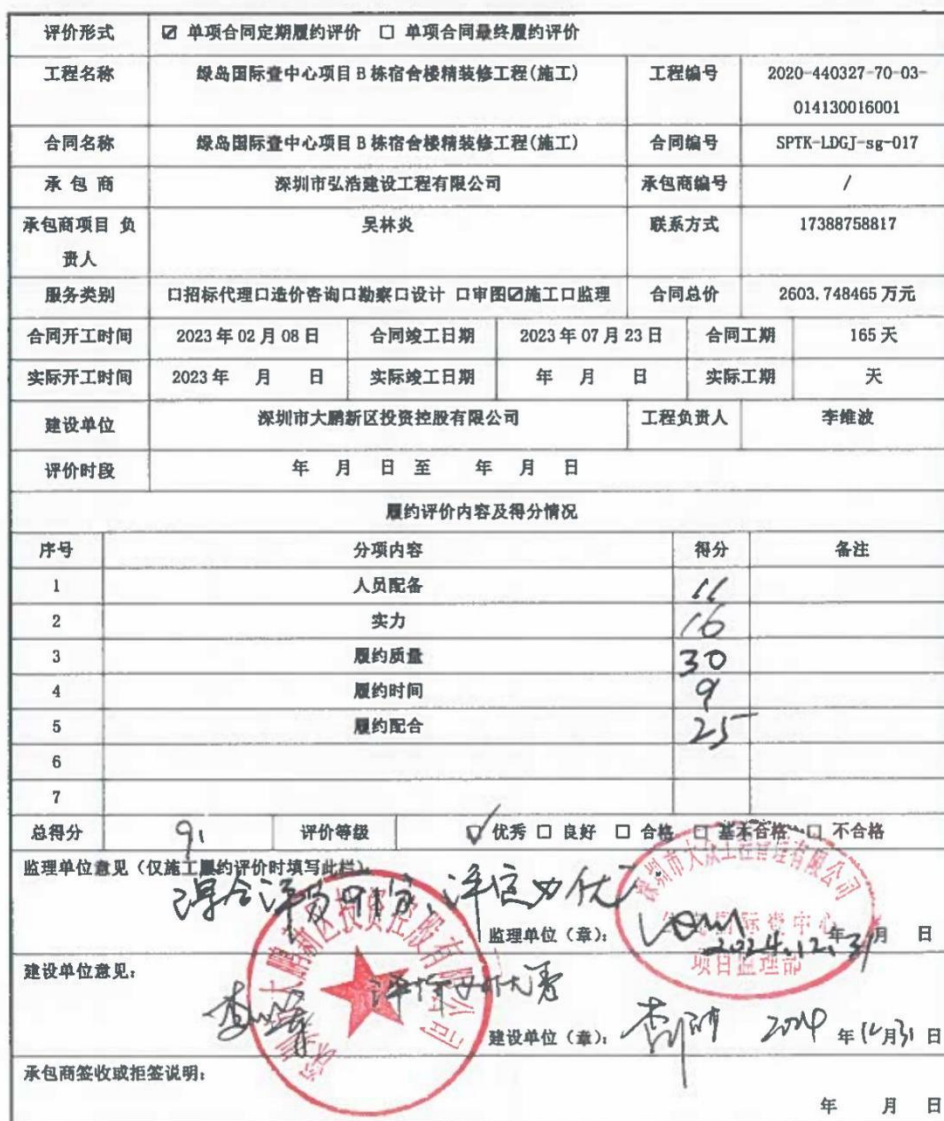 评价形式 ☑ 单项合同定期履约评价 □ 单项合同最终履约评价
工程名称 绿岛国际壹中心项目 B 栋宿舍楼精装修工程(施工) 工程编号 2020-440327-70-03-
014130016001
合同名称 绿岛国际壹中心项目 B 栋宿舍楼精装修工程(施工) 合同编号 SPTK-LDGJ-sg-017
承 包 商 深圳市弘浩建设工程有限公司 承包商编号 /
承包商项目 负 吴林炎 联系方式 17388758817
责人
服务类别 口招标代理口造价咨询口勘察口设计 口审图☑施工口监理 合同总价 2603.748465 万元
合同开工时间 2023 年 02 月 08 日 合同竣工日期 2023 年 07 月 23 日 合同工期 165 天
实际开工时间 2023 年 月 日 实际竣工日期 年 月 日 实际工期 天
建设单位 深圳市大鹏新区投资控股有限公司 工程负责人 李维波
评价时段 年 月 日 至 年 月 日
履约评价内容及得分情况
序号 分项内容 得分 备注
1 人员配备 11
2 实力 16
3 履约质量 30
4 履约时间 9
5 履约配合 25
6
7
总得分 91 评价等级 ☑ 优秀 □ 良好 □ 合格 □ 基本合格 □ 不合格
监理单位意见（仅施工履约评价时填写此栏）：
综合评分91分，评定为优
监理单位（章）： 年 月 日
2024.12.31
深圳市大众工程管理有限公司
项目监理部
建设单位意见：
建设单位（章）： 2024 年 12 月 31 日
大鹏新区投资控股有限公司
承包商签收或拒签说明：
年 月 日